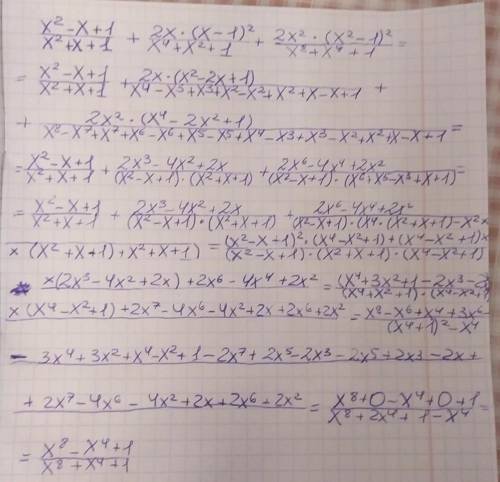 (x²-x+1)/(x²+x+1) + (2x·(x-1)²)/(x⁴+x²+1) + (2x²·(x²-1)²)/(x⁸+x⁴+1) =
= (x²-x+1)/(x²+x+1) + (2x·(x²-2x+1))/(x⁴-x³+x³+x²-x²+x²+x-x+1) +
+ (2x²·(x⁴-2x²+1))/(x⁸-x⁷+x⁷+x⁶-x⁶+x⁵-x⁵+x⁴-x³+x³-x²+x²+x-x+1) =
= (x²-x+1)/(x²+x+1) + (2x³-4x²+2x)/((x²-x+1)·(x²+x+1)) + (2x⁶-4x⁴+2x²)/((x²-x+1)·(x⁶+x⁵-x³+x+1)) =
= (x²-x+1)/(x²+x+1) + (2x³-4x²+2x)/((x²-x+1)·(x²+x+1)) + (2x⁶-4x⁴+2x²)/((x²-x+1)·(x⁴·(x²+x+1)-x²×
×(x²+x+1)+x²+x+1) = ((x²-x+1)²·(x⁴-x²+1)+(x⁴-x²+1)×)/((x²-x+1)·(x²+x+1)·(x⁴-x²+1)
×(2x³-4x²+2x)+2x⁶-4x⁴+2x² = (x⁴+3x²+1-2x³-2x)/((x⁴+x²+1)·(x⁴-x²+1)
×(x⁴-x²+1)+2x⁷-4x⁶-4x²+2x+2x⁶+2x² = (x⁸-x⁶+x⁴+3x⁶)/((x⁴+1)²-x⁴)
- 3x⁴+3x²+x⁴-x²+1-2x⁷+2x⁵-2x³-2x⁵+2x³-2x+
+ 2x⁷-4x⁶-4x²+2x+2x⁶+2x² = (x⁸+0-x⁴+0+1)/(x⁸+2x⁴+1-x⁴) =
= (x⁸-x⁴+1)/(x⁸+x⁴+1)